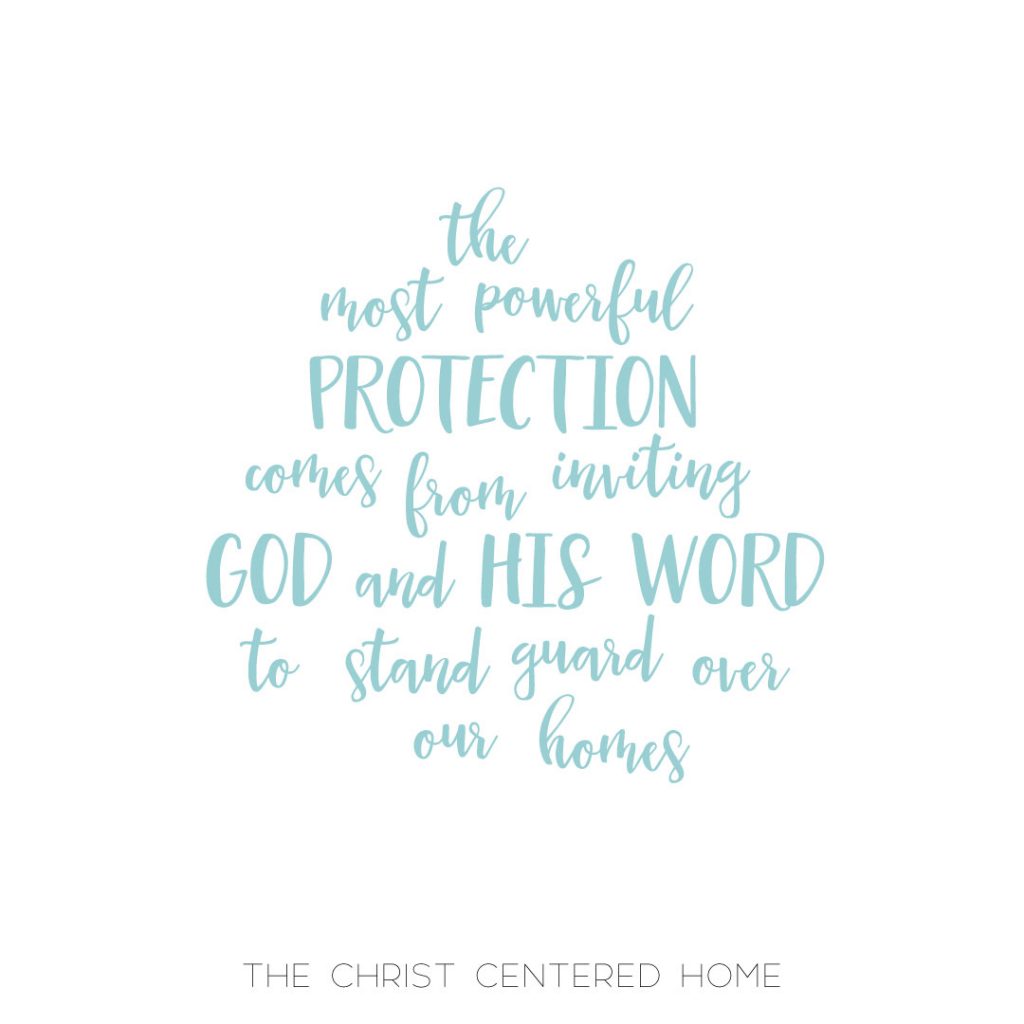 the
most powerful
PROTECTION
comes from inviting
GOD and HIS WORD
to stand guard over
our homes
THE CHRIST CENTERED HOME